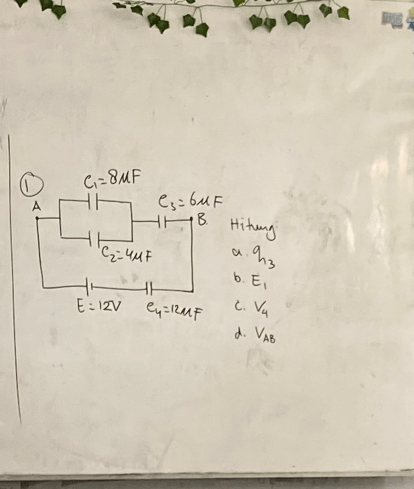 1
C₁=8μF
A
C₃=6μF
B.
C₂=4μF
E=12V
C₄=12μF
Hitung:
a. q₃
b. E₁
c. V₄
d. V_AB